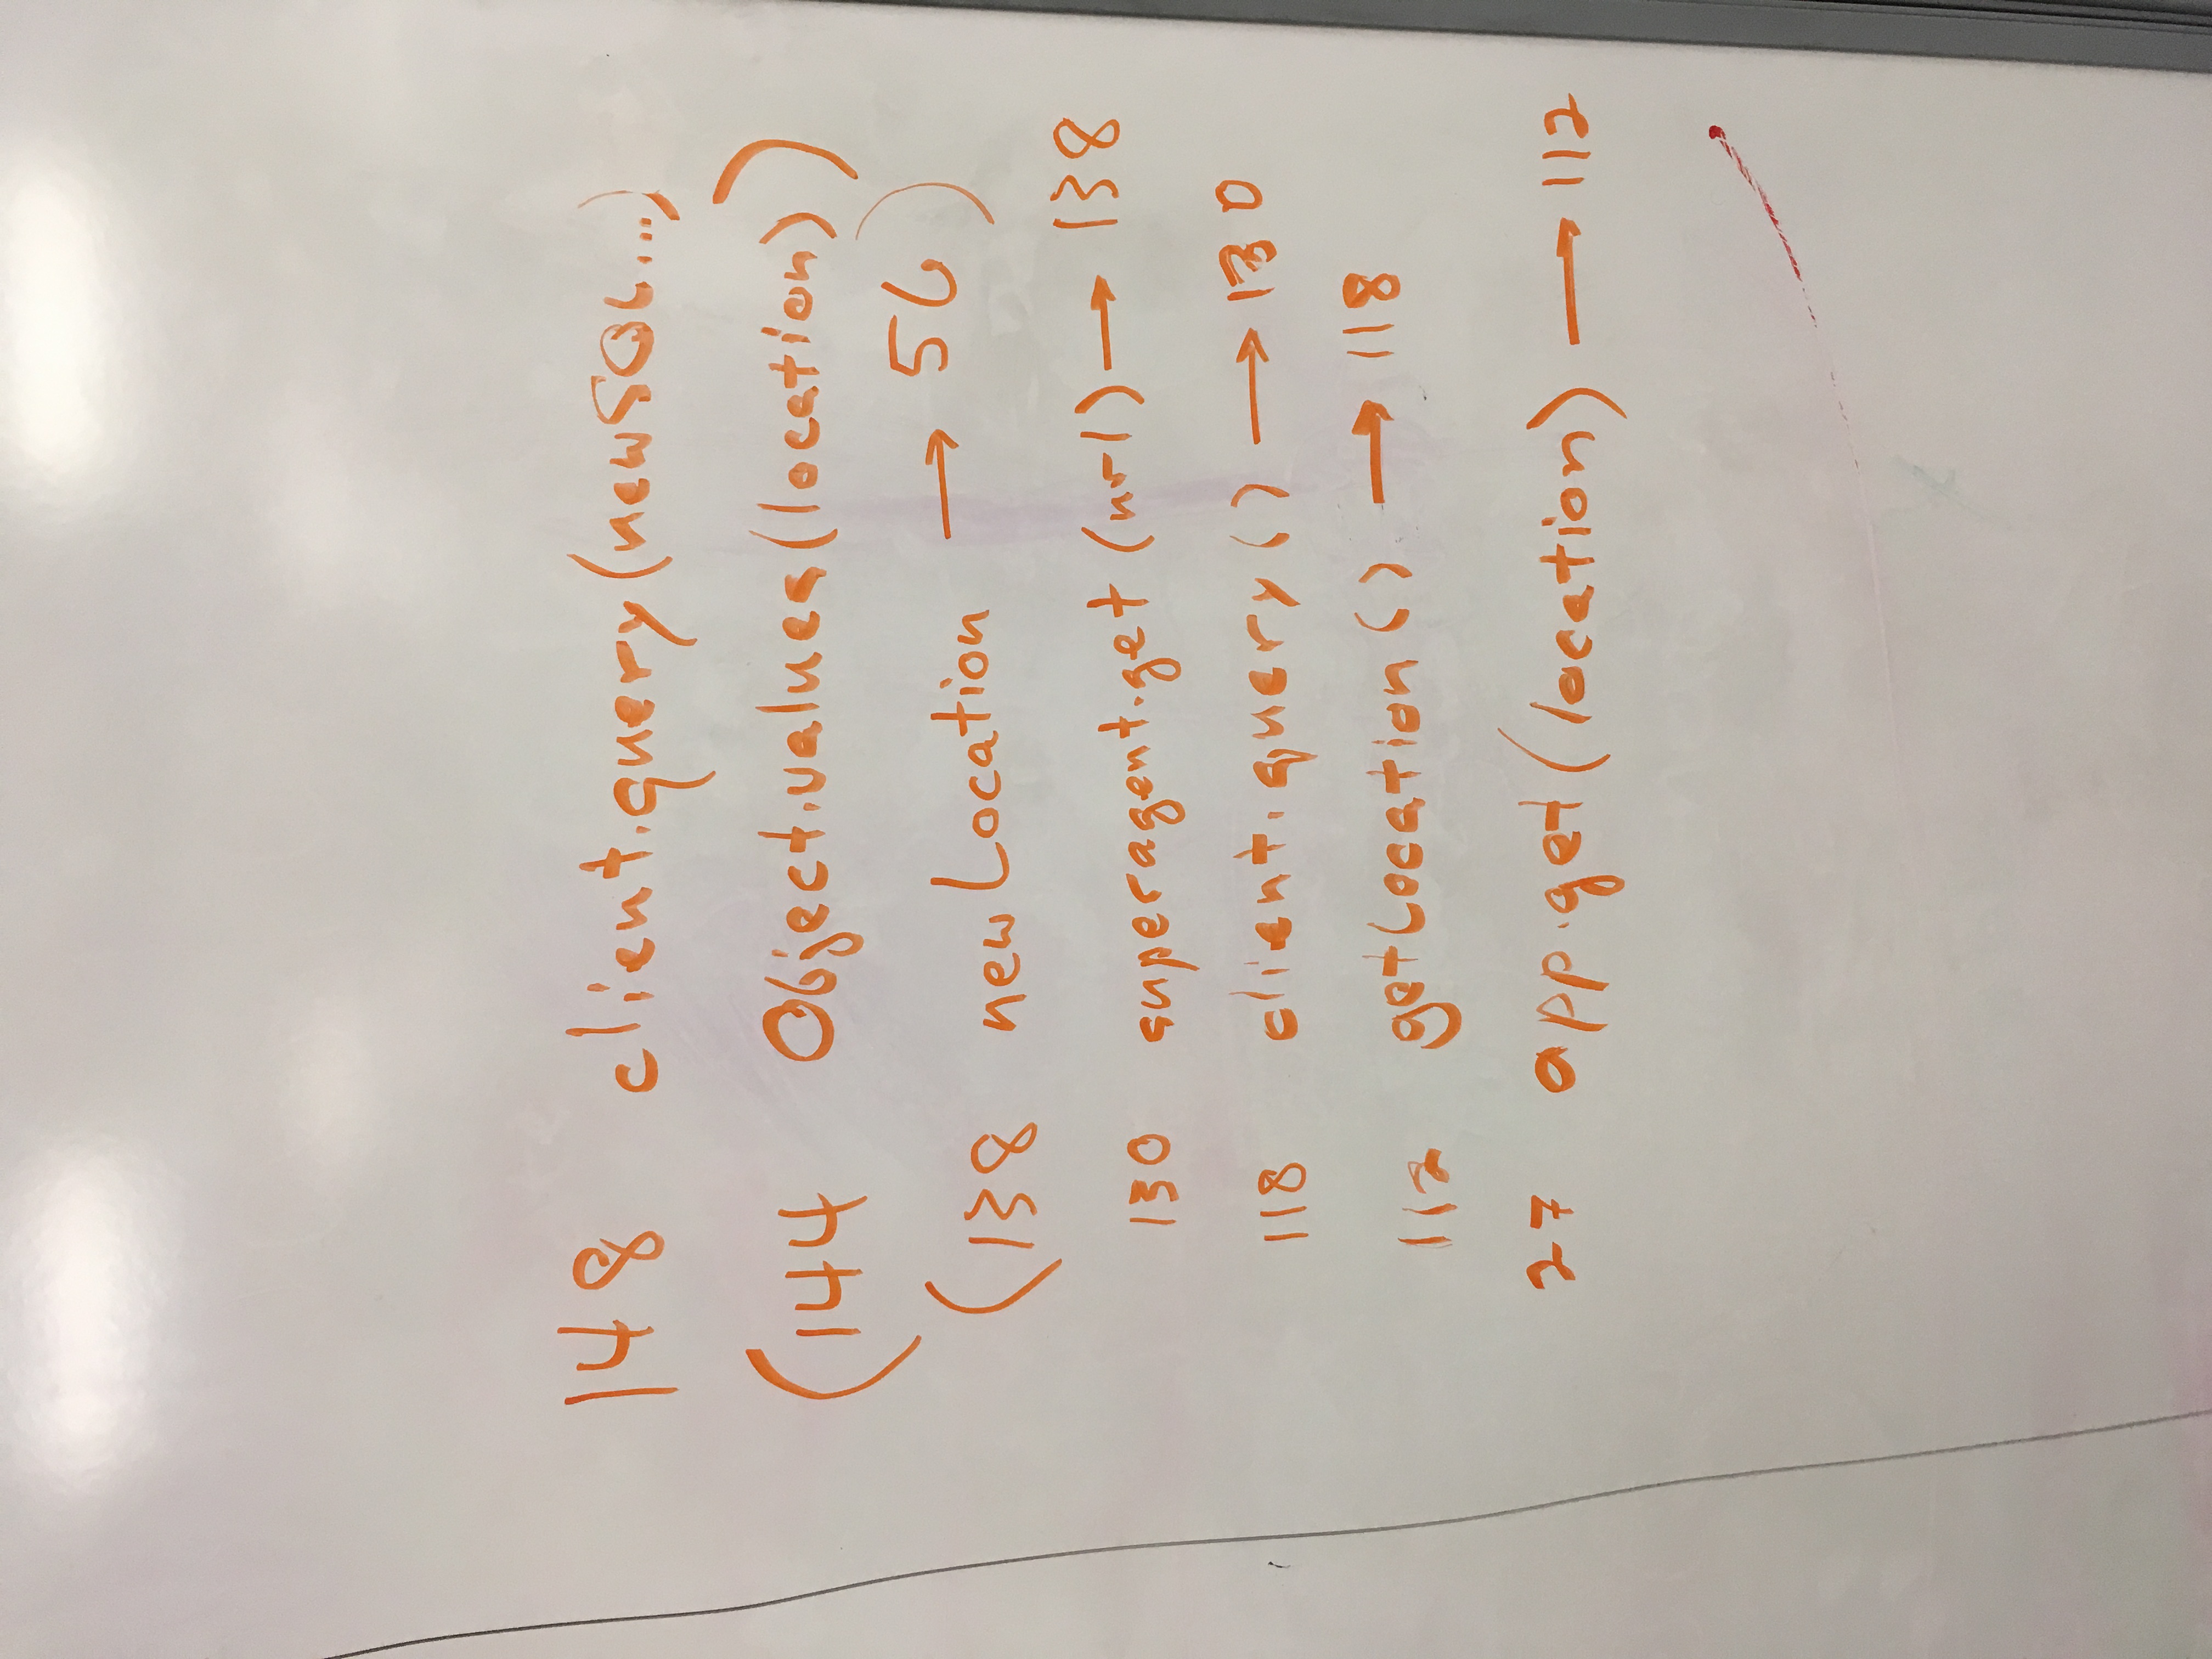 148 client.query(newSQL...)
(144 Object.values(location))
(138 newLocation → 56)
130 superagent.get (url) → 138
118 client.query() → 130
112 getLocation() → 118
27 app.get(location) → 112